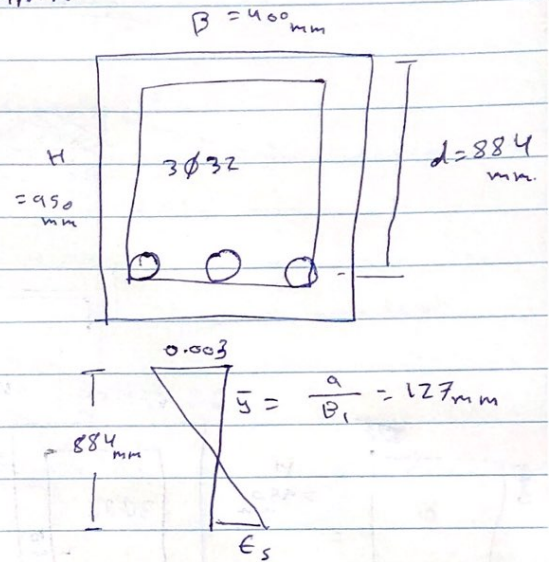 B = 400 mm
H = 950 mm
3∅32
d = 884 mm.
0.003
ȳ = a/B₁ = 127 mm
884 mm
ϵs